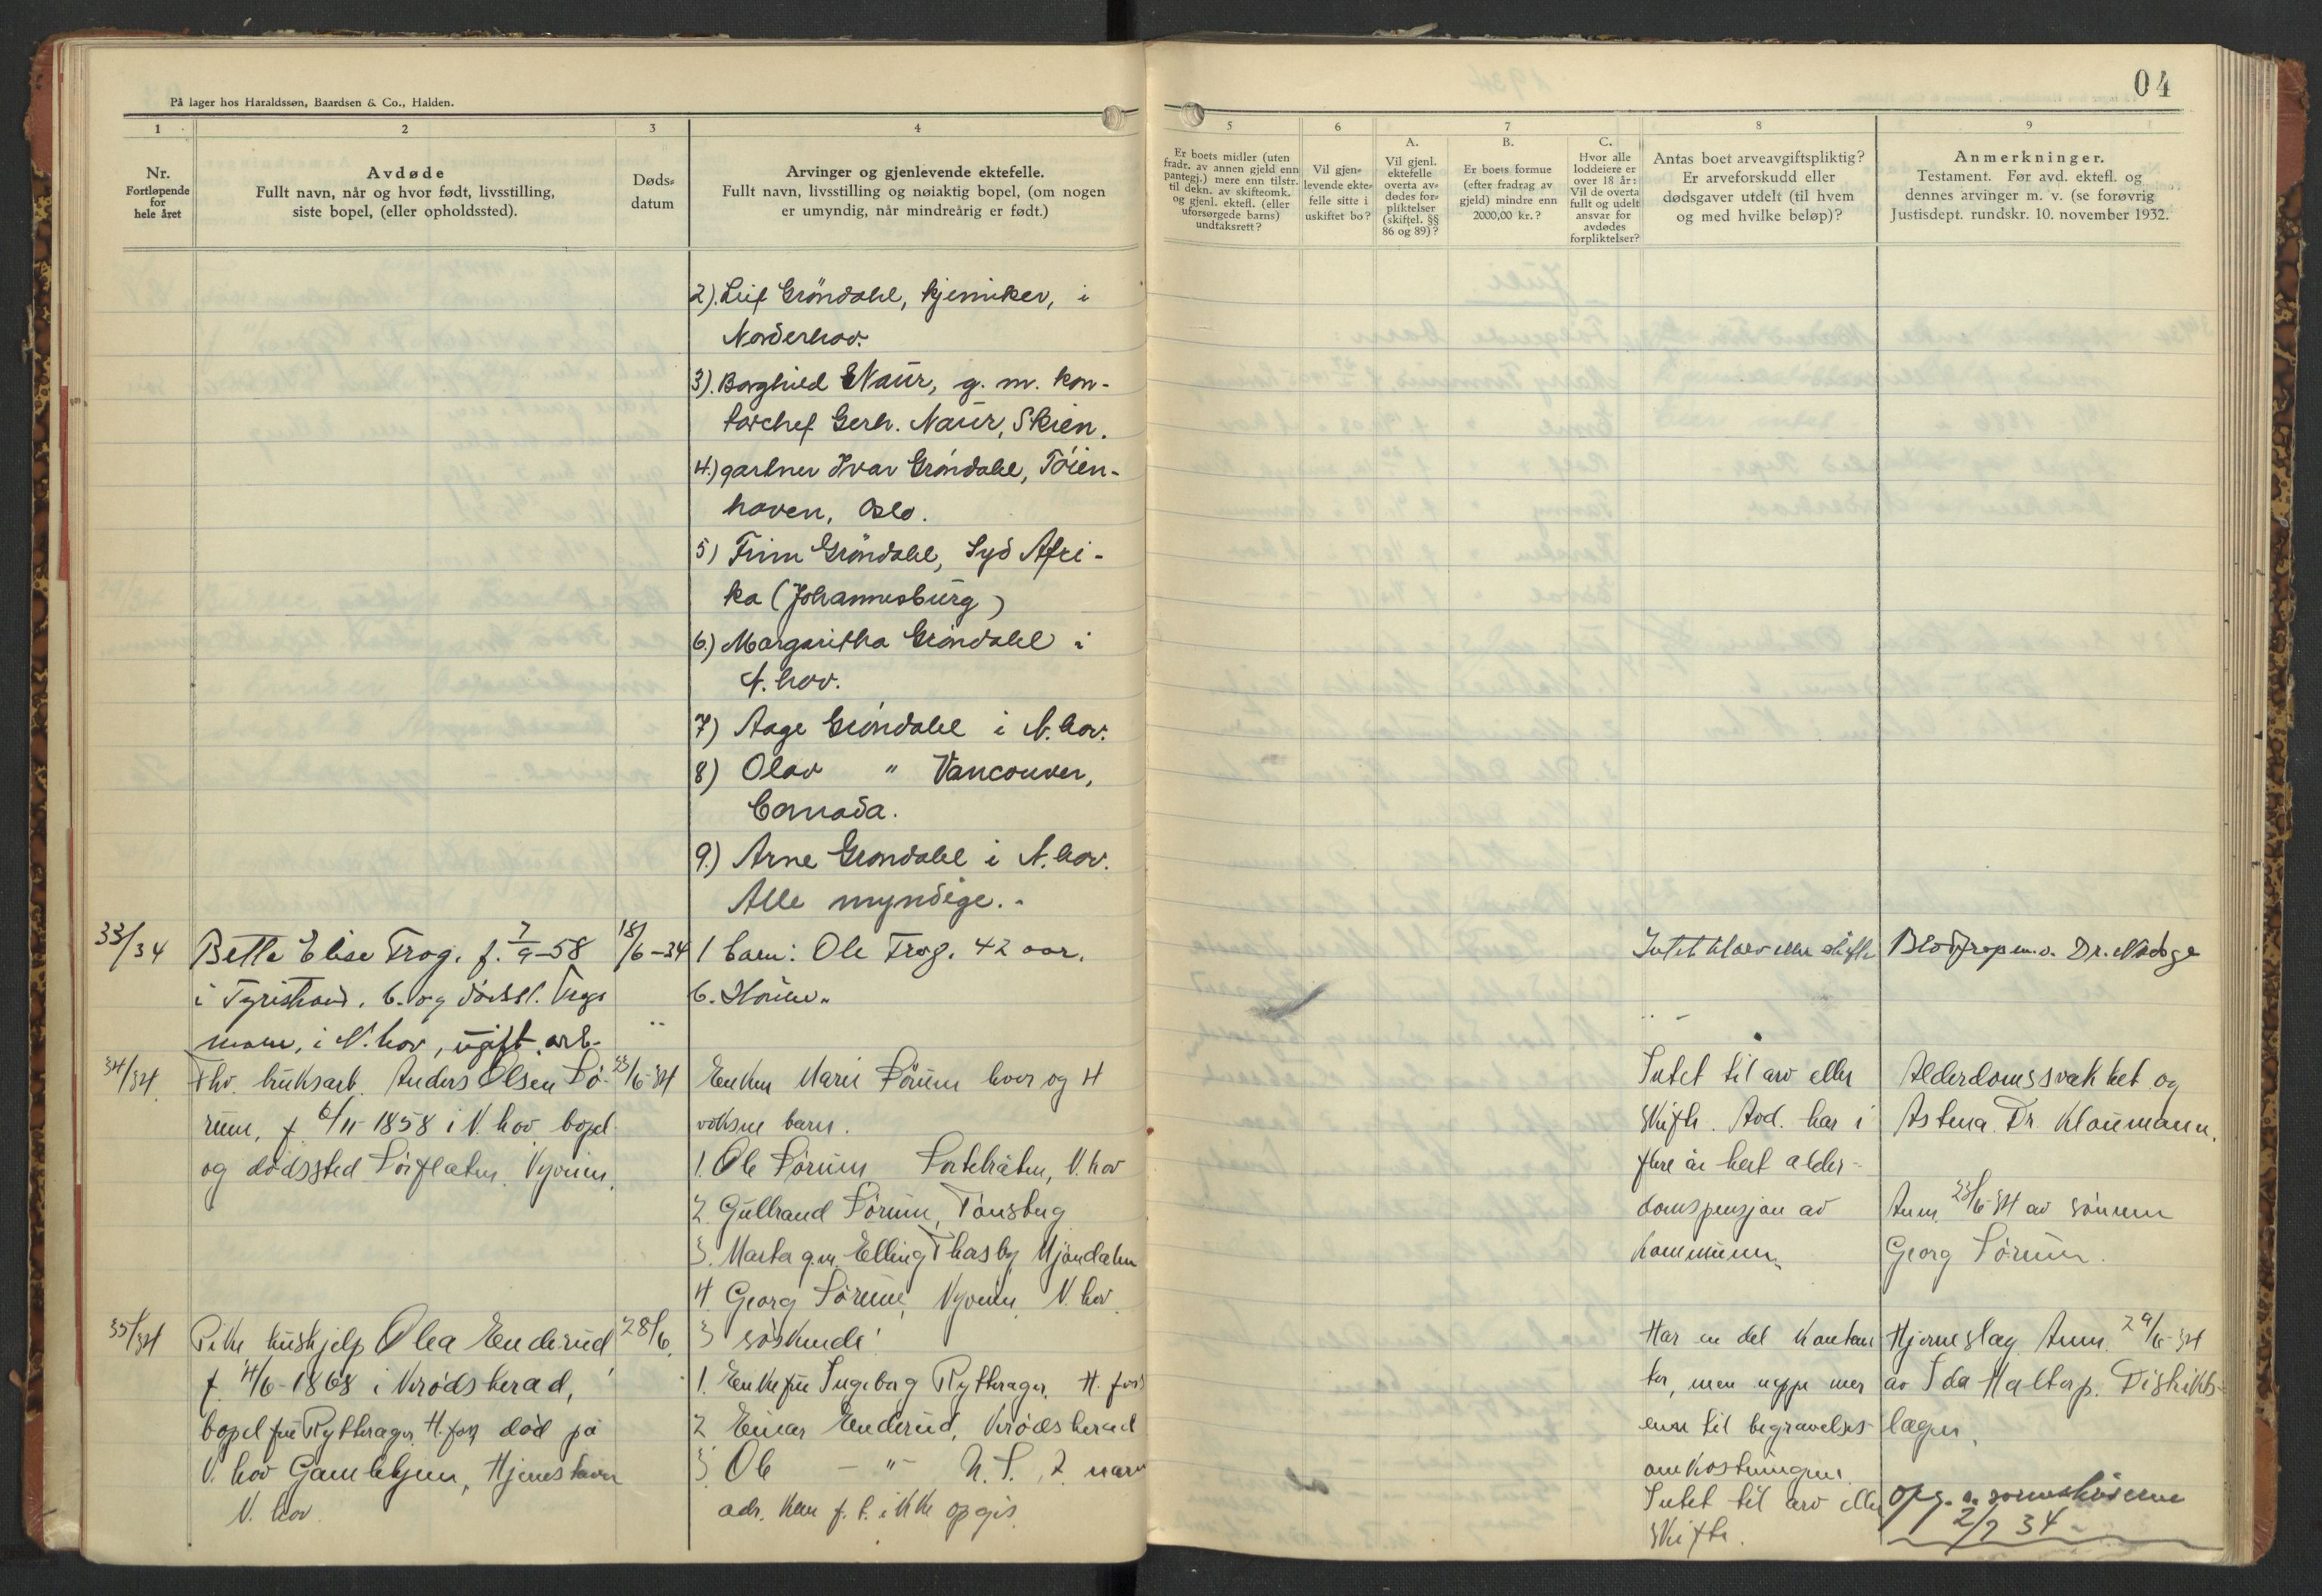 På lager hos Haraldssøn, Baardsen & Co., Halden.
1
Nr.
Fortløpende
for
hele året
2
Avdøde
Fullt navn, når og hvor født, livsstilling,
siste bopel, (eller opholdssted).
3
Døds-
datum
4
Arvinger og gjenlevende ektefelle.
Fullt navn, livsstilling og nøiaktig bopel, (om nogen
er umyndig, når mindreårig er født.)
2). Leif Gröndahl, kjemiker, i
Norderhov.
3). Borghild Naur, g. m. kon-
torchef Gerh. Naur, Skien.
4.) gartner Ivar Gröndahl, Töien-
haven, Oslo.
5) Finn Gröndahl, Syd Afri-
ka (Johannesburg)
6.) Margaritha Gröndahl i
N. hov.
7) Aage Gröndahl i N. hov.
8) Olav " Vancouver,
Canada.
9.) Arne Grondahl i N. hov.
Alle myndige.-
33/34
Bette Elise Trog. f. 7/9-58
i Tyristrand. b. og dödsst.
i N. hov, ugift arb.
18/6-34
1 barn: Ole Trog. 42 aar.
34/34.
Fhv. bruksarb. Anders Olsen Sö-
rum, f 6/11-1858 i N. hov bopel
og dødssted Sörflaten.
23/6-34
Enken Marie Sörum hver og 4
voksne barn.
1. Ole Sörum N. hov
2. Gulbrand Sörum, Tönsberg
3. Marta g.m. Elling Thorsby Mjöndalen
4. Georg Sörum, N. hov.
35/34
Pike hushjelp Olea Enderud
f. 4/6-1868 i Krödsherad,
bopel frü Rytterager, H.foss død på
N. hov Gamlehjem,
N. hov.
28/6.
3 söskende!
1. Enkefrü Ingeborg Rytterager, H. foss
2 Einar Enderud, Krødsherad
3. Ole - " -
adr. kan f. t. ikke opgis.
04
5
Er boets midler (uten
fradr. av annen gjeld enn
pantegj.) mere enn tilstr.
til dekn. av skifteomk.
og gjenl. ektefl. (eller
uforsørgede barns)
undtaksrett?
6
Vil gjen-
levende ekte-
felle sitte i
uskiftet bo?
7
A.
Vil gjenl.
ektefelle
overta av-
dødes for-
pliktelser
(skiftel. §§
86 og 89)?
B.
Er boets formue
(efter fradrag av
gjeld) mindre enn
2000,00 kr.?
C.
Hvor alle
loddeiere er
over 18 år:
Vil de overta
fullt og udelt
ansvar for
avdødes
forpliktelser?
8
Antas boet arveavgiftspliktig?
Er arveforskudd eller
dødsgaver utdelt (til hvem
og med hvilke beløp)?
9
Anmerkninger.
Testament. Før avd. ektefl. og
dennes arvinger m. v. (se forøvrig
Justisdept. rundskr. 10. november 1932.
Intet til arv eller skifte
Blodprop m.v. Dr.
Intet til arv eller
skifte. Avd. har i
flere år hevt alder-
domspensjon av
kommunen.
Alderdomssvakhet og
Astma Dr. Klaumann.
Anm. 23/6-34 av sönnen
Georg Sörum.
Har en del kontan
ter, men neppe mer
enn til begravelses-
omkostningene.
Intet til arv eller
skifte.
Hjerneslag. Anm. 29/6-34
av Ida Haltorp. Distrikts-
lægen.
Opg. s.
2/7 34